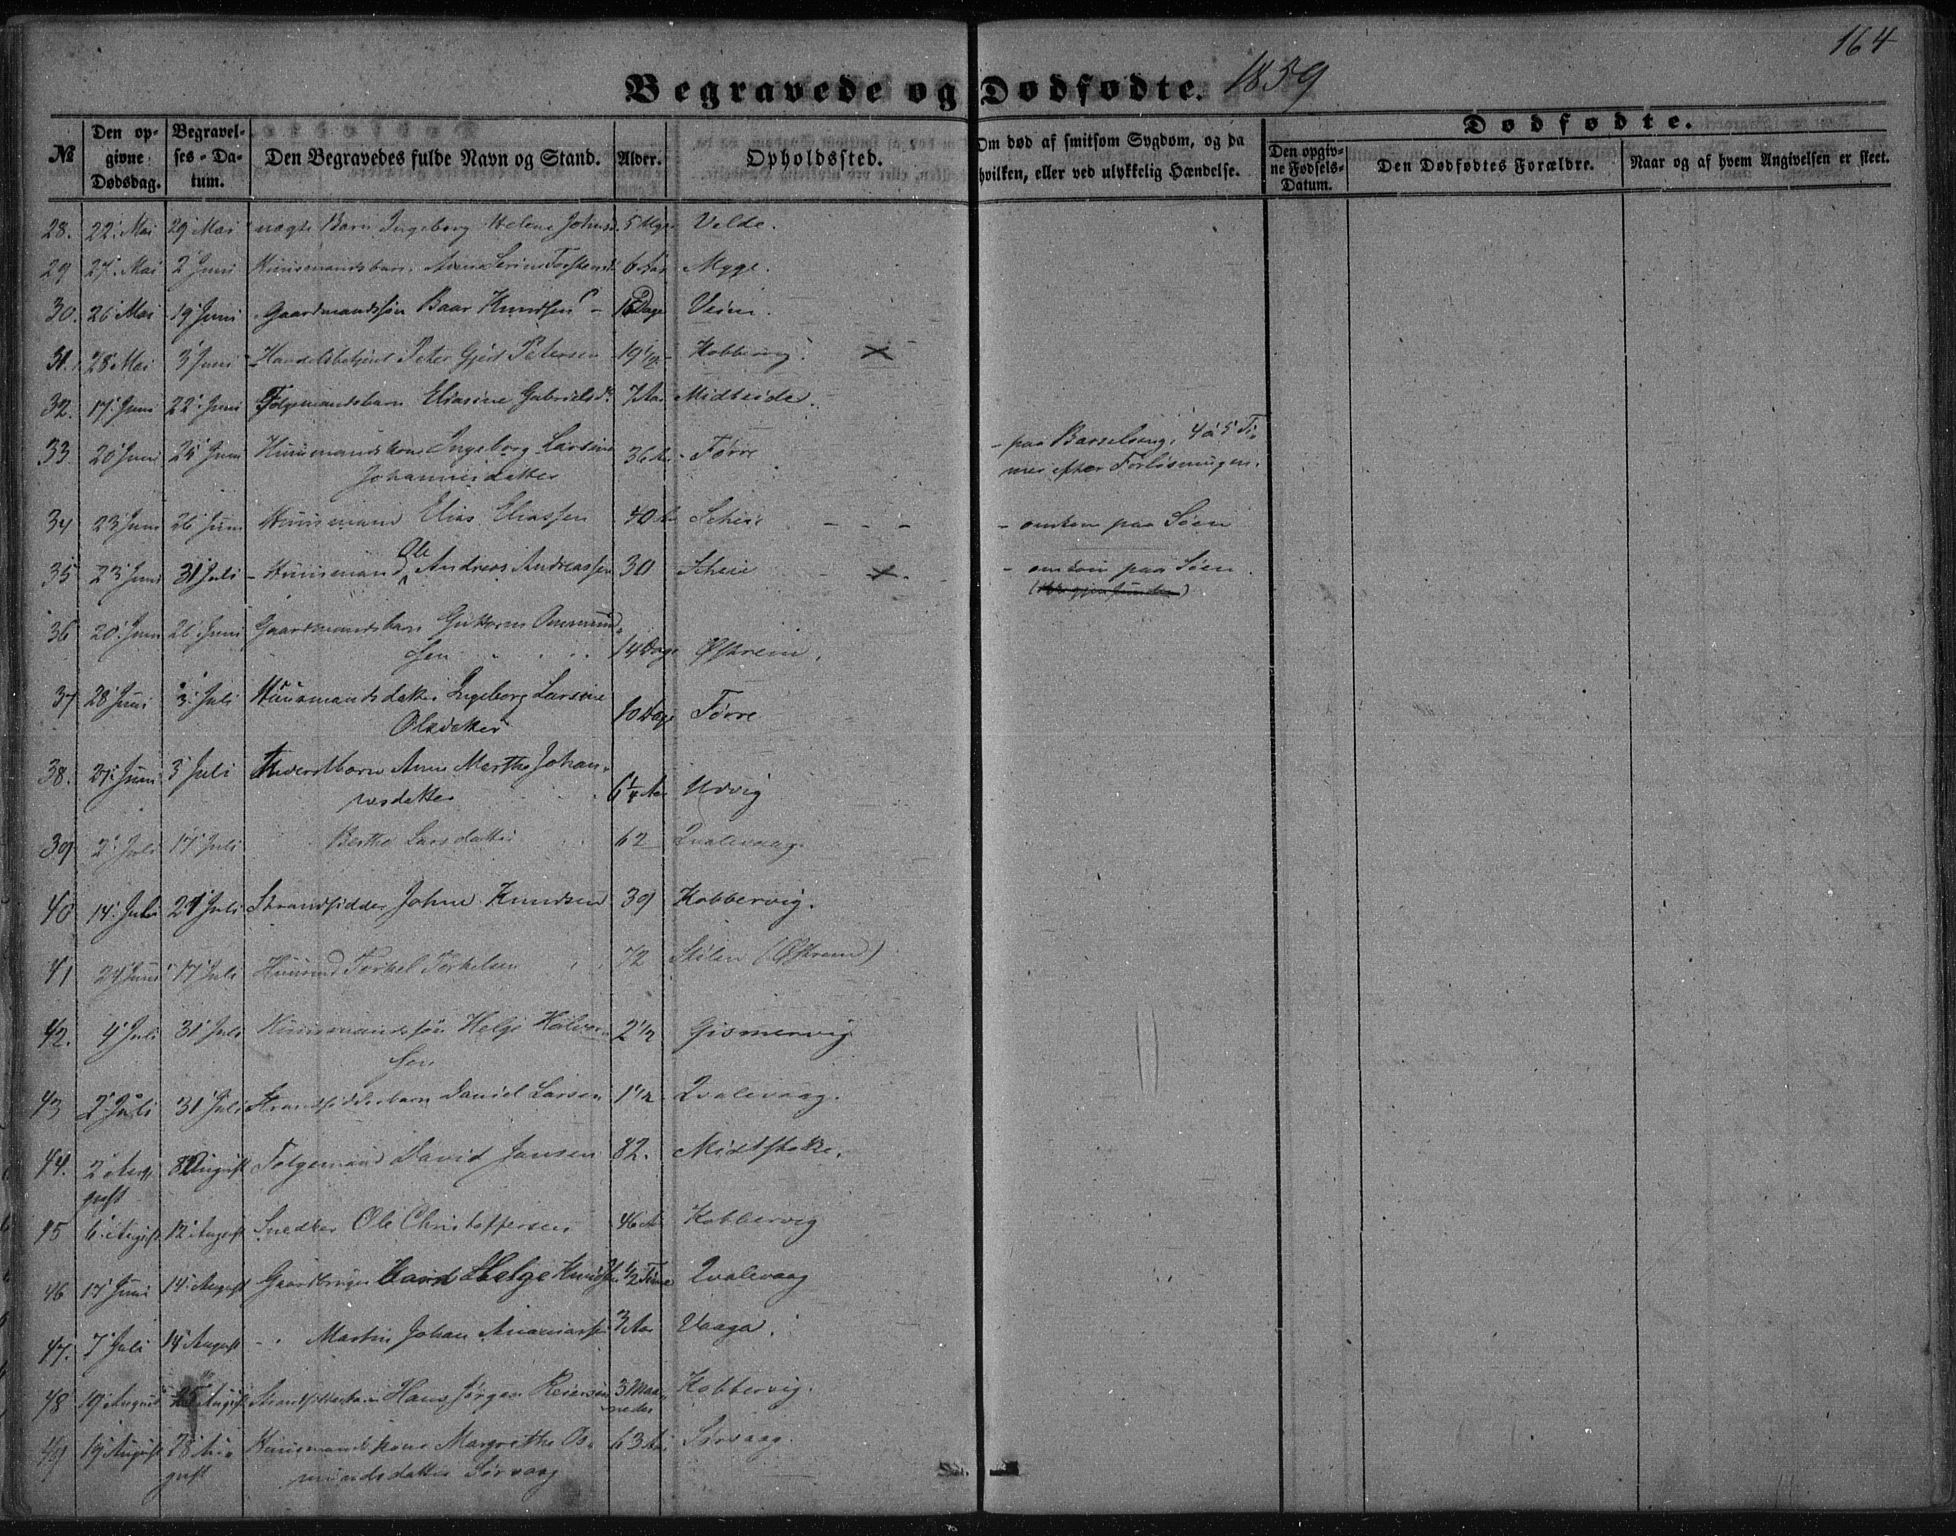 164
Begravede og Dødfødte. 1859
№
Den opgivne Dødsdag.
Begravelses-Datum.
Den Begravedes fulde Navn og Stand.
Alder.
Opholdssted.
Om død af smitsom Sygdom, og da hvilken, eller ved ulykkelig Hændelse.
Dødfødte.
Den opgivne Fødsels-Datum.
Den Dødfødtes Forældre.
Naar og af hvem Angivelsen er skeet.
28. 22 Mai 29 Mai uægte Barn Ingeborg Helene Johnsd. 5 Velde.
29 27 Mai 2 Juni Huusmandsbarn Anna Serine 6 Aar Myge.
30. 26 Mai 19 Juni Gaardmandssøn Baar Knudsen 16 Dage Veim.
31. 28 Mai 3 Juni Handelsbetjent Peter Gjert Petersen 19 1/2 Kobbervig.
32. 17 Juni 22 Juni Folgemandsbarn Eliasine Gabrielsd. 7 Aar Midbeide.
33 20 Juni 24 Juni Huusmandskone Ingeborg Larsine 36 Aar Førre - paa Barselseng, 4 à 5 Ti-
Johannesdatter mer efter Forløsningen.
34 23 Juni 26 Juni Huusmand Elias Eliassen 40 Aar Scheie - - - - omkom paa Søen
35 23 Juni 31 Juli - Huusmand Ole Andreas Andreassen 30 Scheie - omkom paa Søen.
36 20 Juni 26 Juni Gaardmandsbarn Guttorm Ommund-
sen 14 Dage Østrem.
37 28 Juni 3 Juli Huusmandsdatter Ingeborg Larsine
Olsdatter 10 Dage Førre
38. 27 Juni 3 Juli Anne Marthe Johan-
nesdatter 6 1/4 Aar Udvig
39 2 Juli 17 Juli Berthe Larsdatter 62 Qvalevaag.
40 14 Juli 24 Juli Strandsidder Johne Knudsen 39 Kobbervig.
41 24 Juni 17 Juli Huusmd Torkel Torkelsen 72 Stølen (Østrem)
42. 4 Juli 31 Juli Huusmandssøn Helge Halvor-
sen 2 1/2 Gismervig
43 2 Juli 31 Juli Strandsidderbarn Daniel Larsen 1 1/2 Qvalevaag.
44. 2 Au-
gust 8 August Folgemand David Jansen 82. Midtstokke.
45 6 August 12 August Snedker Ole Christoffersen 46 Aar Kobbervig
46 17 Juni 14 August Helge Knudsen 1/2 Time Qvalevaag
47. 7 Juli 14 August - " Martin Johan Ananiassen 3 Aar Vaaga.
48 19 August 25 August Strandsidderbarn Hans Jørgen Reiersen 3 Maa- Kobbervig.
neder
49 19 August 28 Au- Huusmandskone Margrethe Os- 63 Aar Sørvaag.
gust mundsdatter Sørvaag